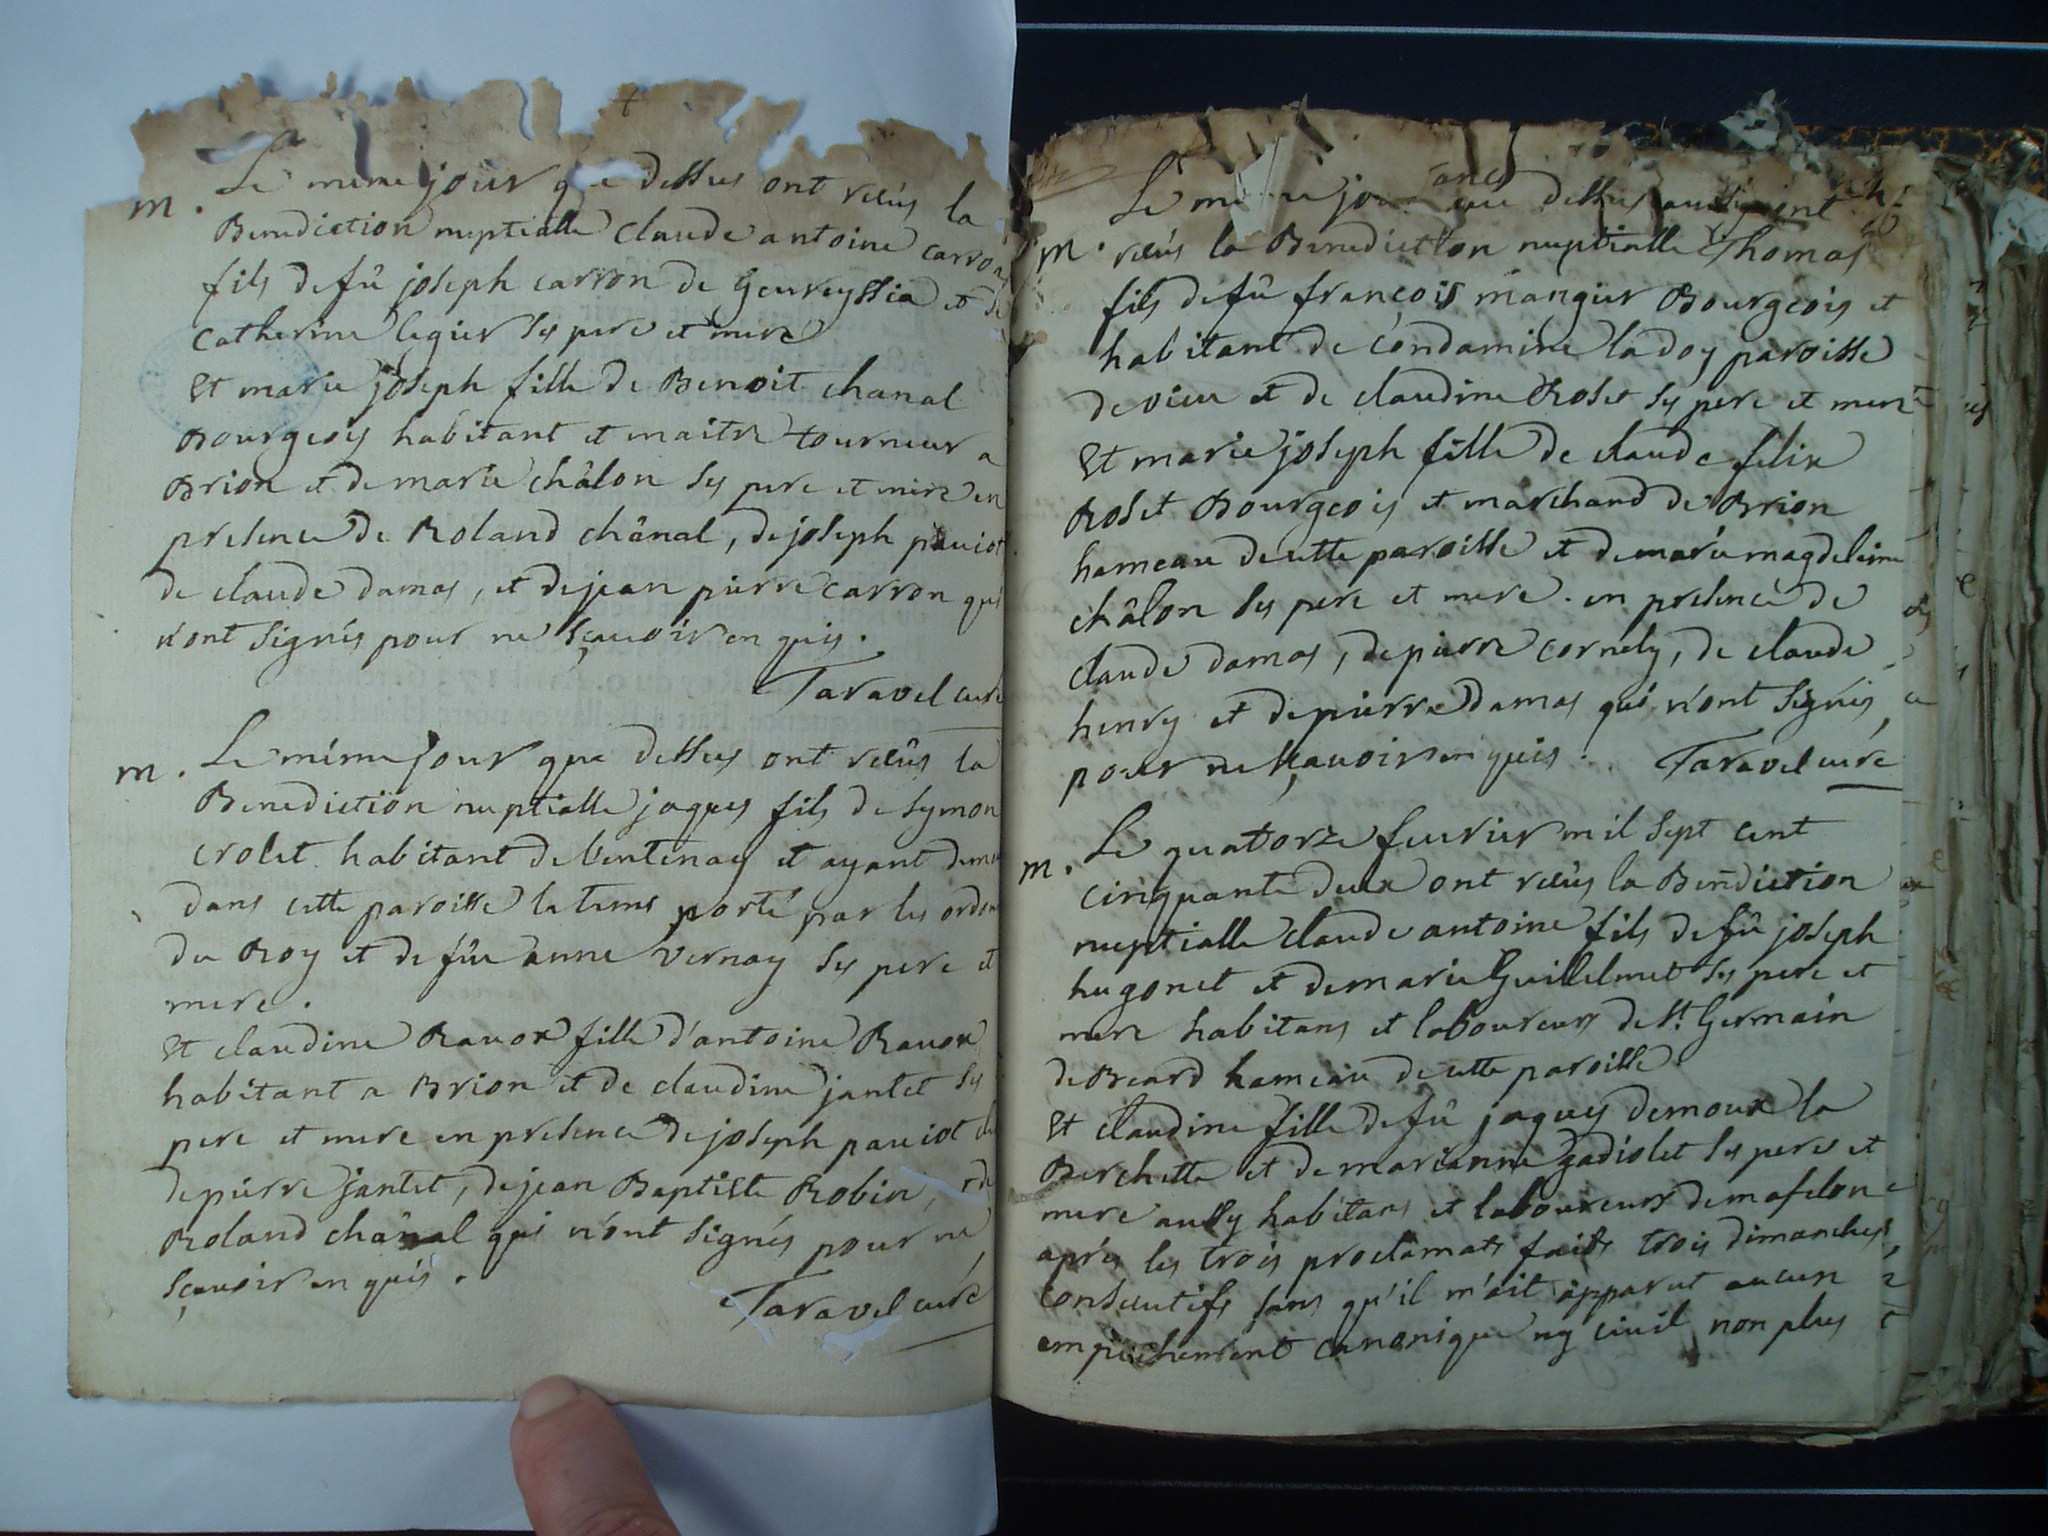 m. Le meme jour que dessus ont reçûs la
Benediction nuptialle claude antoine carron
fils de fû joseph carron de Geureyssia et de
Catherine legier ses pere et mere
Et marie joseph fille de Benoit chanal
Bourgeois habitant et maitre tourneur a
Brion et de marie châlon ses pere et mere en
presence de Roland chânal, de joseph pauiot
de claude damas, et de jean pierre carron qui
n'ont signés pour ne sçauoir en quis.
Taravel curé
m. Le même jour que dessus ont reçûs la
Benediction nuptialle jaques fils de Symon
crolet habitant de Ventenay et ayant
dans cette paroisse le tems porté par les
du Roy et de fûe anne vernay ses pere et
mere.
Et claudine Rauox fille d'antoine Rauox
habitant a Brion et de claudine jantet ses
pere et mere en presence de joseph pauiot
de pierre jantet, de jean Baptiste Robin,
Roland chânal qui n'ont signés pour ne
sçauoir en quis.
Taravel curé
Le meme jour que dessus aussy ont
m. reçûs la Benediction nuptialle Thomas
fils de fû françois mangier Bourgeois et
habitant de Condamine ladoy paroisse
de vieu et de claudine Roset ses pere et mere
Et marie joseph fille de claude felix
Roset Bourgeois et marchand de Brion
hameau de cette paroisse et de marie magdeleine
châlon ses pere et mere. en presence de
claude damas, de pierre cornely, de claude
henry et de pierre damas qui n'ont signés
pour ne sçauoir en quis. Taravel curé
m. Le quatorze feurier mil sept cent
cinquante deux ont reçûs la Benediction
nuptialle claude antoine fils de fû joseph
hugonet et de marie Guillelmet ses pere et
mere habitans et laboureurs de St. Germain
de Beard hameau de cette paroisse
Et claudine fille de fû jaques demoux la
Berchette et de marianne gadiolet ses pere et
mere aussy habitans et laboureurs de mafelon
après les trois proclamats faits trois dimanches
consecutifs sans qu'il m'ait apparut aucun
empechement canonique ny ciuil non plus